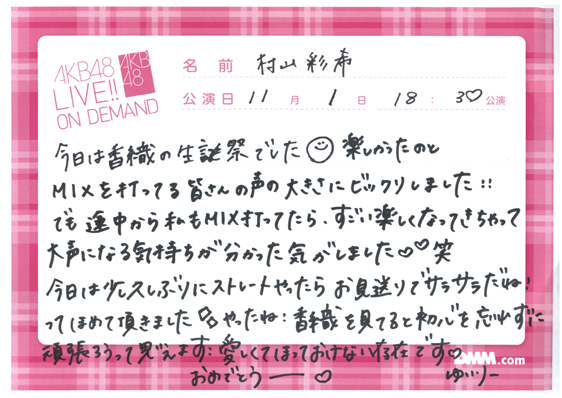 AKB48
LIVE!!
ON DEMAND
AKB
48
名前 村山彩希
公演日 11月1日 18:30公演
今日は香織の生誕祭でした☺楽しかったのと
MIXを打ってる皆さんの声の大きさにビックリしました!!
でも途中から私もMIX打ってたら、すごい楽しくなってきちゃって
大声になる気持ちが分かった気がしました♡♡笑
今日は少し久しぶりにストレートやったらお見送りでサラサラだね!
ってほめて頂きました やったね!香織を見てると初心を忘れずに
頑張ろうって思えます!愛しくてほっておけない存在です♡
おめでとうー♡
ゆいりー
DMM.com